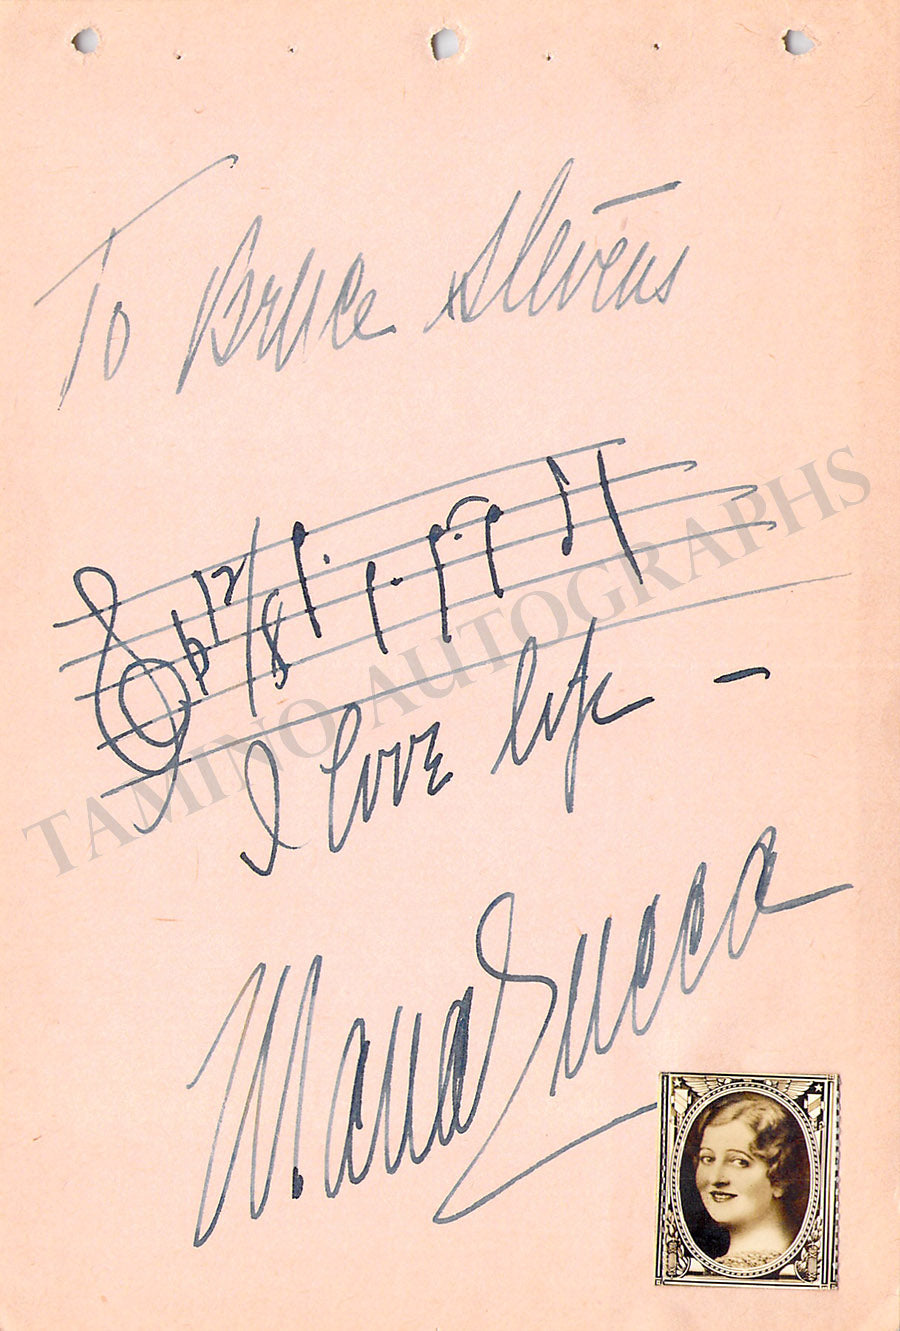 To Bruce Stevens
12
8
I love life -
Mana Zucca
TAMINO AUTOGRAPHS